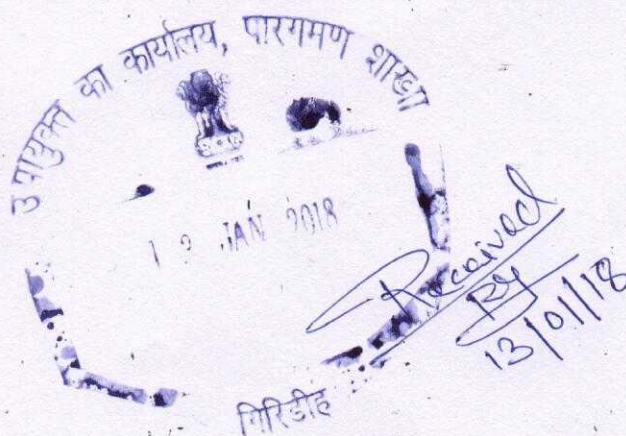 उपायुक्त का कार्यालय, पारगमण शाखा
12 JAN 2018
गिरिडीह
Received
By
13/01/18